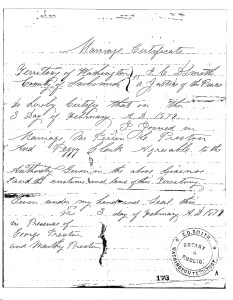 Marriage Certificate
Territory of Washington
County of Snohomish
a Justice of the Peace
do hereby Certify that on this
3 Day of February A.D. 1879
I Joined in
Marriage Mr
Preston
And Peggy Agreeable to the
Authority Given in the above License
and the customs and laws of this Territory
Given under my hand and Seal this
3 day of February A.D 1879
in Presence of
George Preston
and Preston
NOTARY
PUBLIC
WASHINGTON TERRITORY
173